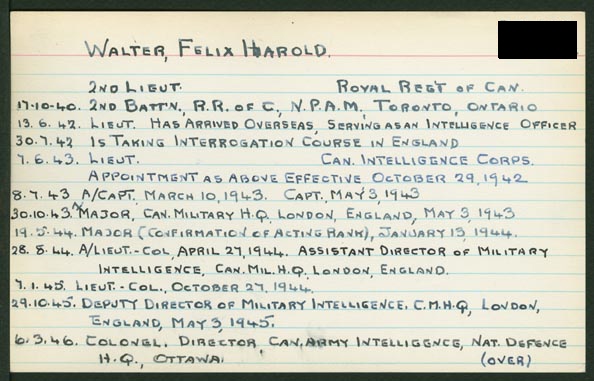 WALTER, FELIX HAROLD.
2ND LIEUT. ROYAL REG'T OF CAN.
17-10-40. 2ND BATT'N, R.R. OF C., N.P.A.M., TORONTO, ONTARIO
13.6.42. LIEUT. HAS ARRIVED OVERSEAS, SERVING AS AN INTELLIGENCE OFFICER
30.7.42 IS TAKING INTERROGATION COURSE IN ENGLAND
7.6.43. LIEUT. CAN. INTELLIGENCE CORPS.
APPOINTMENT AS ABOVE EFFECTIVE OCTOBER 29, 1942
8.7.43 A/CAPT. MARCH 10, 1943. CAPT. MAY 3, 1943
30.10.43. A/MAJOR, CAN. MILITARY H.Q. LONDON, ENGLAND, MAY 3, 1943
19.5.44. MAJOR (CONFIRMATION OF ACTING RANK), JANUARY 13, 1944.
28.8.44. A/LIEUT.-COL, APRIL 27, 1944. ASSISTANT DIRECTOR OF MILITARY
INTELLIGENCE, CAN. MIL. H.Q. LONDON, ENGLAND.
7.1.45. LIEUT.-COL., OCTOBER 27, 1944.
29.10.45. DEPUTY DIRECTOR OF MILITARY INTELLIGENCE. C.M.H.Q., LONDON,
ENGLAND, MAY 3, 1945.
6.3.46. COLONEL. DIRECTOR CAN. ARMY INTELLIGENCE, NAT. DEFENCE
H.Q., OTTAWA. (OVER)